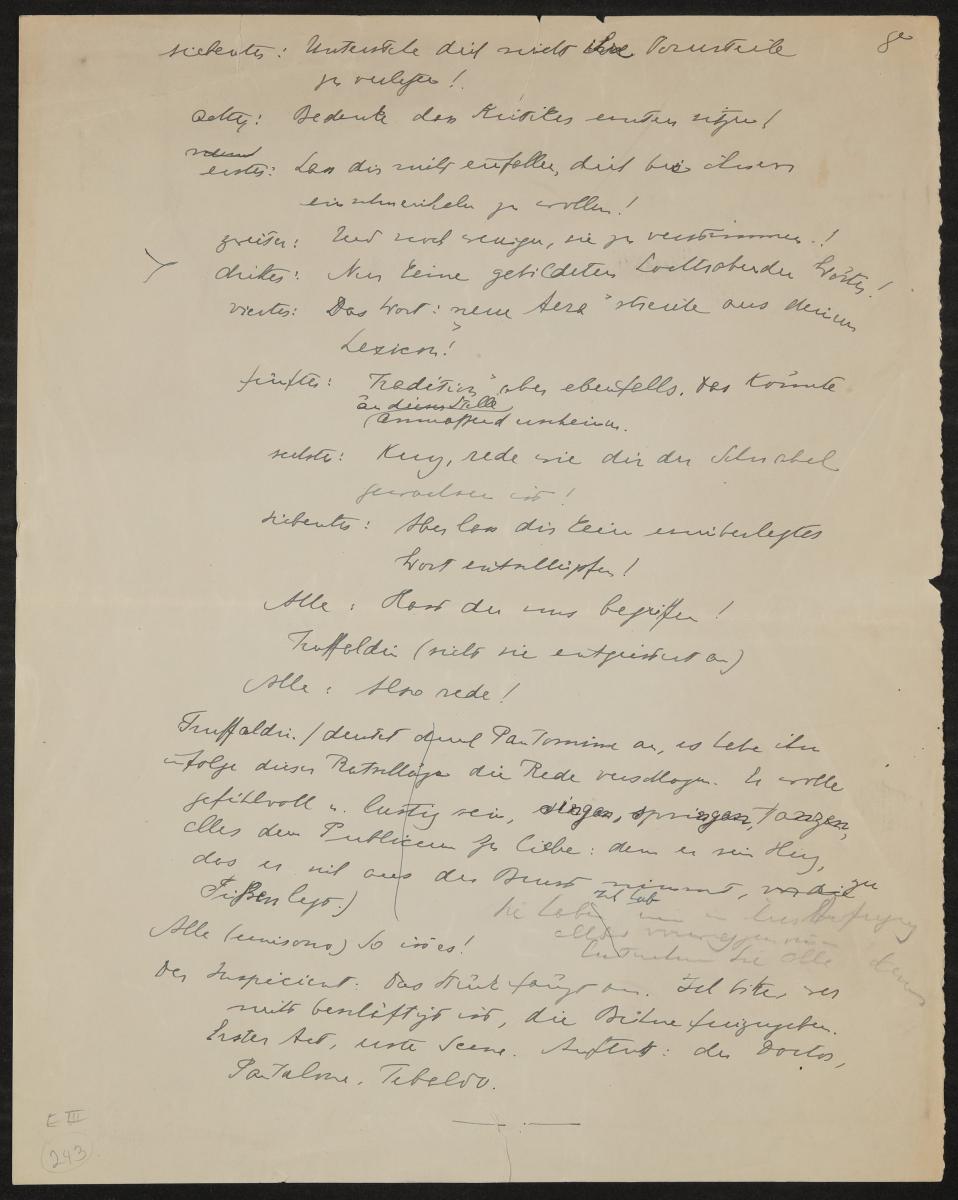 siebentes: Unterstehe dich nicht ihre Vorurteile
zu verletzen!
achtes: Bedenke dass Kritiker unten sitzen!
erstes: Lass dir nicht einfallen, dich bei ihnen
einschmeicheln zu wollen!
zweites: Und noch weniger, sie zu verstimmen!
drittes: Nur keine gebildeten Worte!
viertes: Das Wort: neue Aera" streiche aus deinem
Lexicon!
fünftes: Tradition" aber ebenfalls. Das könnte
an dieser Stelle
anmassend erscheinen.
sechstes: Kurz, rede wie dir der Schnabel
gewachsen ist!
siebentes: Aber lass dir kein unüberlegtes
Wort entschlüpfen!
Alle: Hast du uns begriffen!
Truffaldin (sieht sie entgeistert an)
Alle: Also rede!
Truffaldin (deutet durch Pantomime an, es habe ihm
infolge dieser Ratschläge die Rede verschlagen. Er wolle
gefühlvoll u. lustig sein, singen, springen, tanzen,
alles dem Publicum zu Liebe: dem er sein Herz,
das er sich aus der Brust nimmt, zu
Füßen legt.)
Ich hab
Sie haben
alles
Entnehmen Sie alle
Alle (unisono) So ist es!
Der Inspicient: Das Stück fängt an. Ich bitte, wer
nicht beschäftigt ist, die Bühne freizugeben.
Erster Act, erste Scene. Auftritt: der Doctor,
Pantalone, Tebaldo.
E III
243